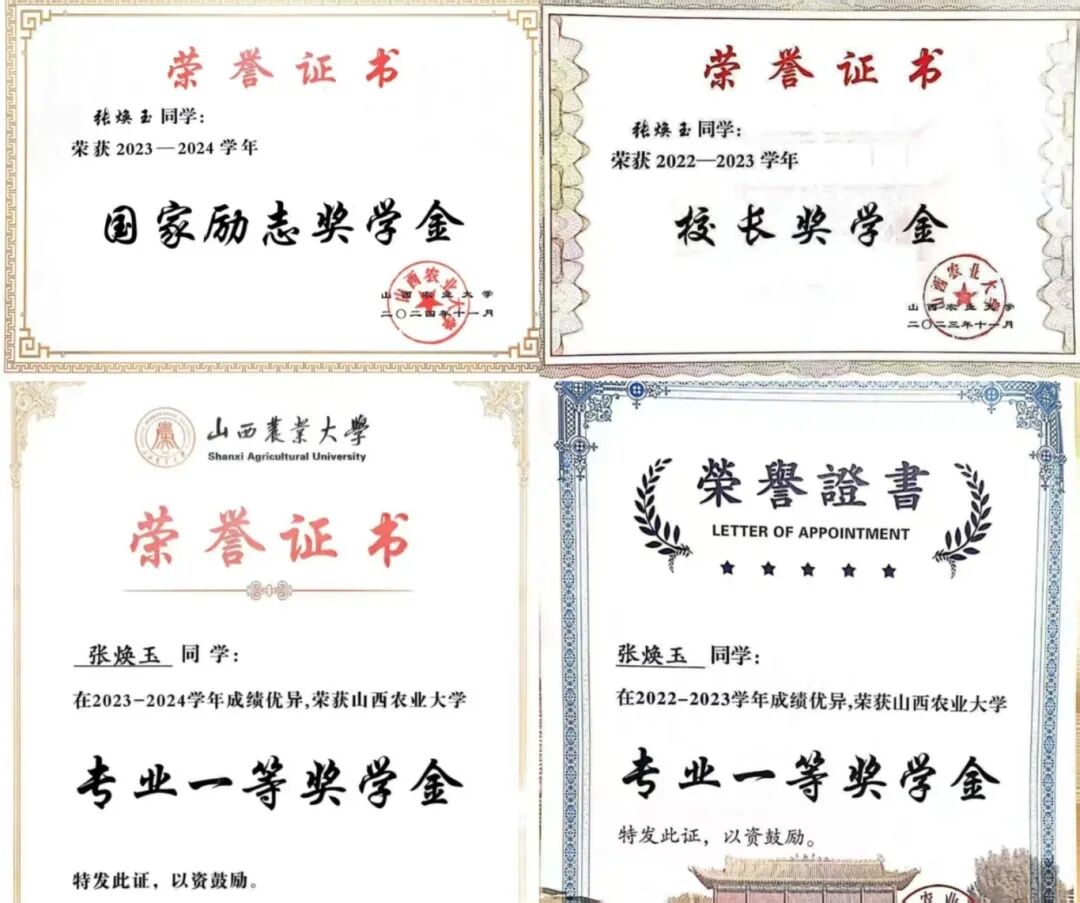 荣誉证书
张焕玉同学：
荣获2023—2024学年
国家励志奖学金
山西农业大学
山西农业大学
二〇二四年十一月
荣誉证书
张焕玉同学：
荣获2022—2023学年
校长奖学金
山西农业大学
山西农业大学
二〇二三年十一月
山西農業大學
Shanxi Agricultural University
荣誉证书
张焕玉 同学：
在2023-2024学年成绩优异,荣获山西农业大学
专业一等奖学金
特发此证，以资鼓励。
榮譽證書
LETTER OF APPOINTMENT
张焕玉 同学：
在2022-2023学年成绩优异,荣获山西农业大学
专业一等奖学金
特发此证，以资鼓励。